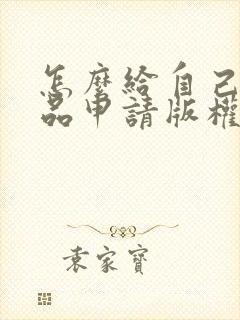 怎麼給自己
品申請版權
袁家寶